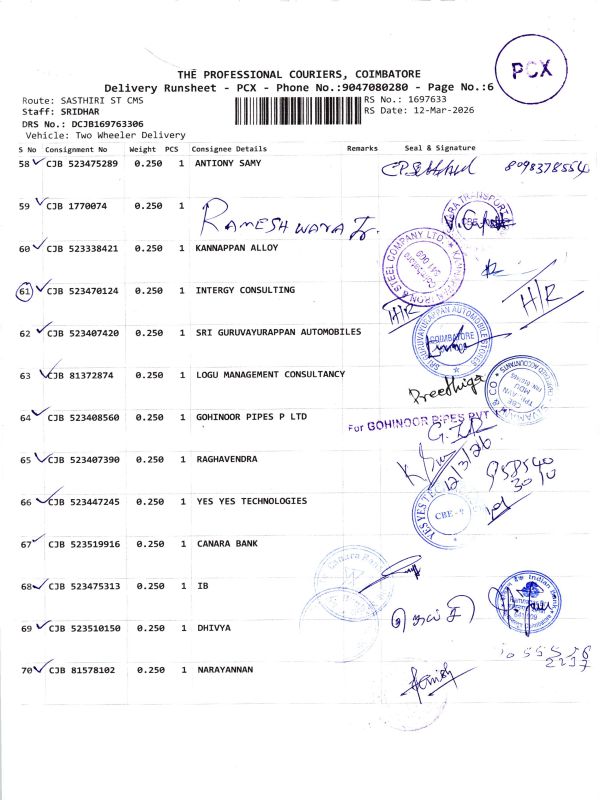 PCX
THE PROFESSIONAL COURIERS, COIMBATORE
Delivery Runsheet - PCX - Phone No.:9047080280 - Page No.:6
Route: SASTHIRI ST CMS
RS No.: 1697633
Staff: SRIDHAR
RS Date: 12-Mar-2026
DRS No.: DCJB169763306
Vehicle: Two Wheeler Delivery
S No Consignment No Weight PCS Consignee Details Remarks Seal & Signature
58 CJB 523475289 0.250 1 ANTIONY SAMY 8098378554
59 CJB 1770074 0.250 1 RAMESHWARA
60 CJB 523338421 0.250 1 KANNAPPAN ALLOY
61 CJB 523470124 0.250 1 INTERGY CONSULTING H/R H/R
62 CJB 523407420 0.250 1 SRI GURUVAYURAPPAN AUTOMOBILES COIMBATORE
63 CJB 81372874 1 0.250 1 LOGU MANAGEMENT CONSULTANCY Preethiga
64 CJB 523408560 0.250 1 GOHINOOR PIPES P LTD For GOHINOOR PIPES PVT
65 CJB 523407390 0.250 1 RAGHAVENDRA 12/3/26
66 CJB 523447245 0.250 1 YES YES TECHNOLOGIES YES YES TEC CBE - 9
67 CJB 523519916 0.250 1 CANARA BANK Canara Bank
68 CJB 523475313 0.250 1 IB Indian Bank
69 CJB 523510150 0.250 1 DHIVYA
70 CJB 81578102 0.250 1 NARAYANNAN